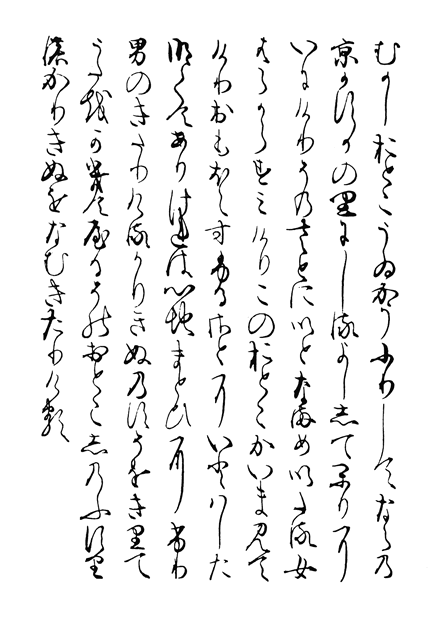 むかしおとこうゐかうふりしてならの
京かすかの里にしるよししてかりに
いにけりそのさとにいとなまめいたる女
はらからすみけりこのおとこかいまみて
けりおもほえすふるさとにいとはした
なくてありけれは心地まとひにけり
男のきたりけるかりきぬのすそをきりて
うたをかきてやるそのおとこしのふすり
のかりきぬをなむきたりける